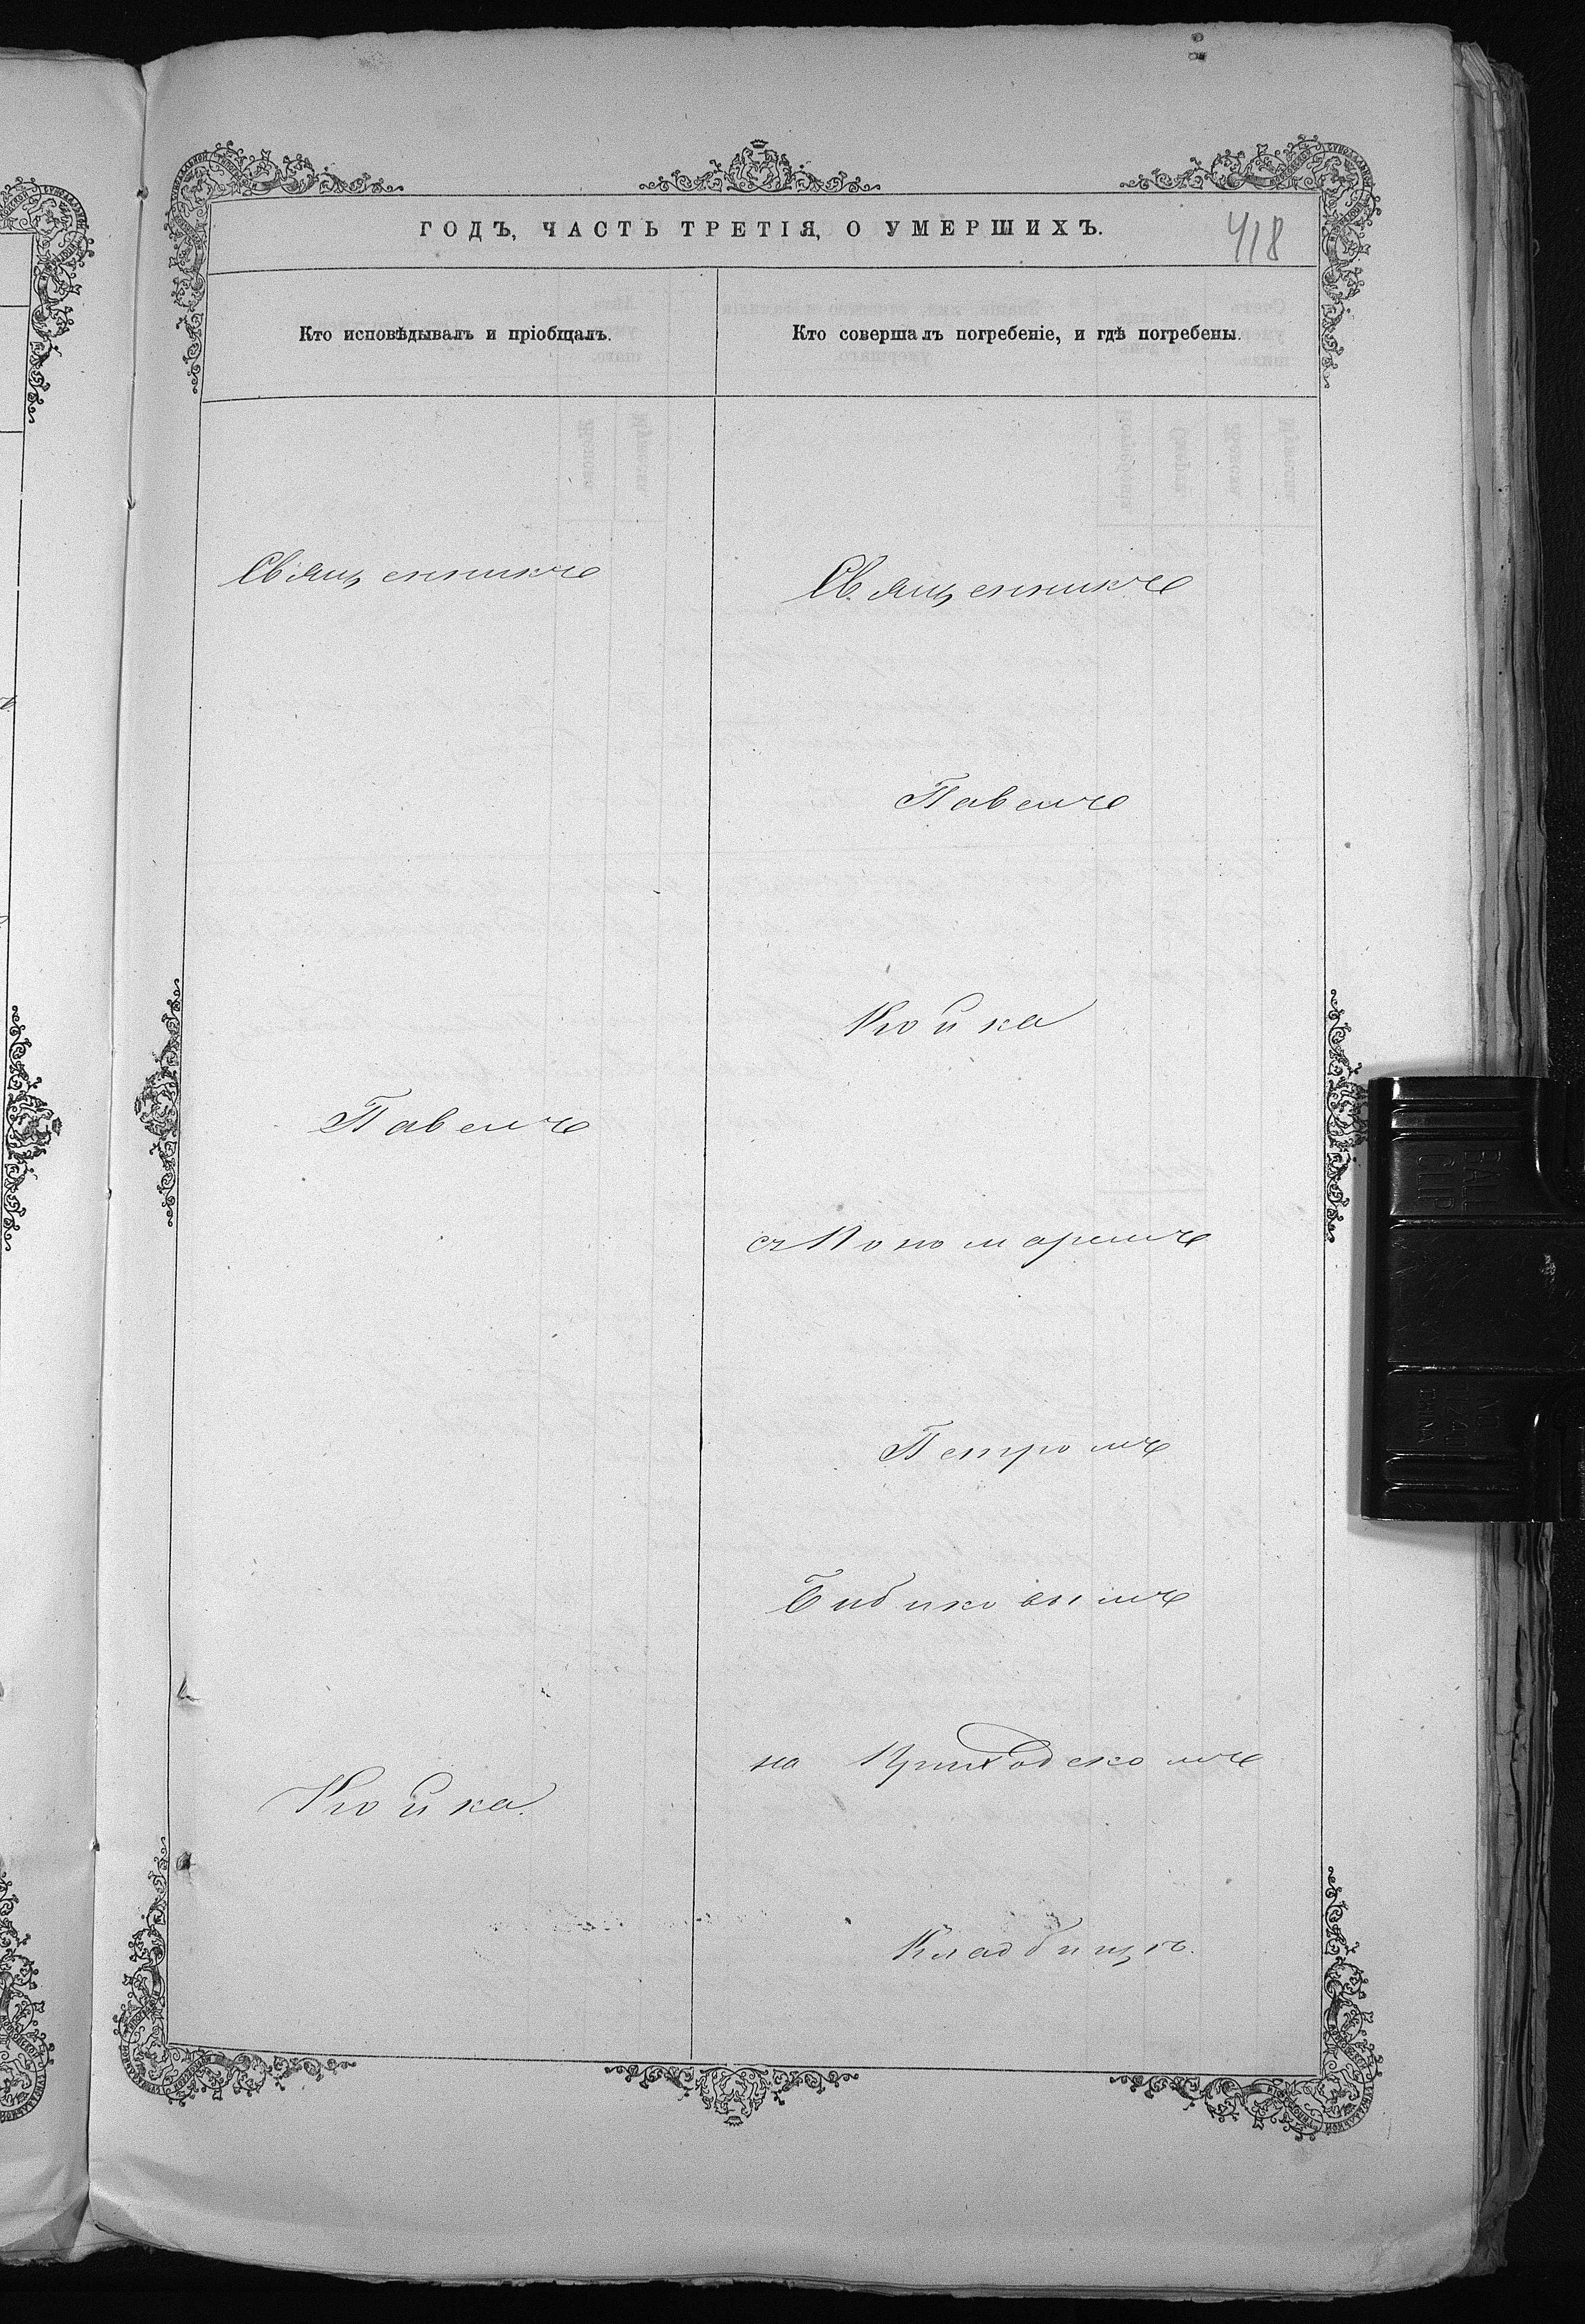 ГОДЪ, ЧАСТЬ ТРЕТІЯ, О УМЕРШИХЪ.
418
Кто исповѣдывалъ и пріобщалъ.
Кто совершалъ погребеніе, и гдѣ погребены.
Священникъ
Павелъ
Кюйка.
Священникъ
Павелъ
Кюйка
съ Пономаремъ
Петромъ
Бибиковымъ
на Приходскомъ
Кладбищѣ.
BALL
CLIP